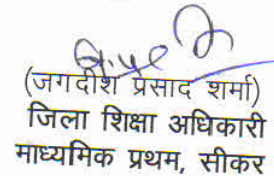 (जगदीश प्रसाद शर्मा)
जिला शिक्षा अधिकारी
माध्यमिक प्रथम, सीकर